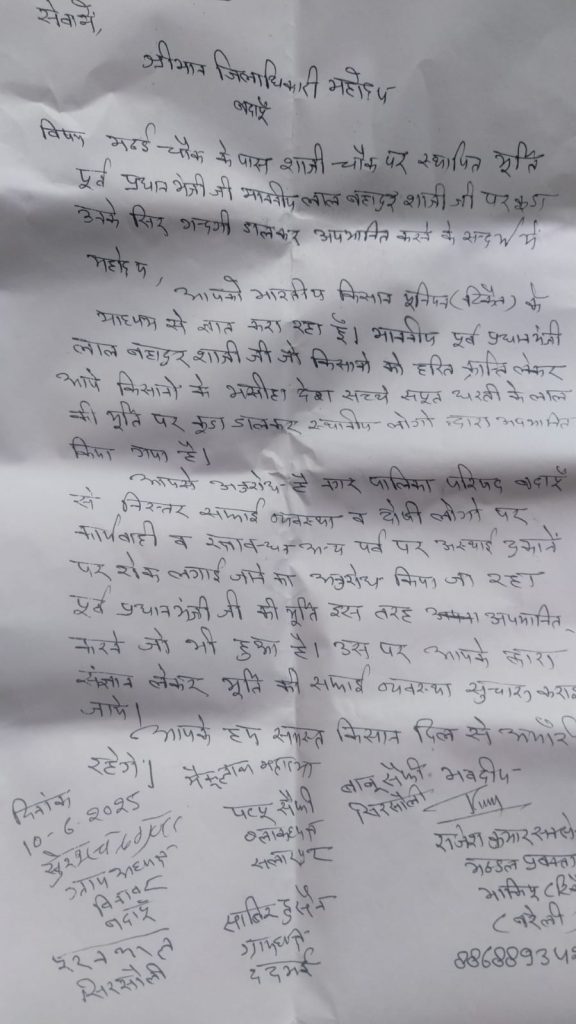 सेवामें,
श्रीमान जिलाधिकारी महोदय
बदायूँ
विषय चौक के पास शास्त्री चौक पर स्थापित मूर्ति
पूर्व प्रधानमंत्री जी माननीय लाल बहादुर शास्त्री जी पर कूडा
उनके सिर गन्दगी डालकर अपमानित करने के सन्दर्भ में
महोदय,
आपको भारतीय किसान यूनियन (टिकैत) के
माध्यम से ज्ञात करा रहा हूँ। माननीय पूर्व प्रधानमंत्री
लाल बहादुर शास्त्री जी जो किसानों को हरित क्रान्ति लेकर
आये किसानों के मसीहा देश सच्चे सपूत धरती के लाल
की मूर्ति पर कूडा डालकर स्थानीय लोगो द्वारा अपमानित
किया गया है।
आपसे अनुरोध है पालिका परिषद बदायूँ
से निरन्तर सफाई व्यवस्था व दोषी लोगो पर
कार्यवाही व अन्य पर्व पर अस्थाई दुकानें
पर रोक लगाई जाने का अनुरोध किया जा रहा
पूर्व प्रधानमंत्री जी की मूर्ति इस तरह अपमानित
करने जो भी हुआ है। उस पर आपके द्वारा
संज्ञान लेकर मूर्ति की सफाई व्यवस्था सुचारू कराई
जाये।
आपके हम समस्त किसान दिल से आभारी
रहेगे।
बाबू सैफी भवदीय
सिरसौली
दिनांक
10-6-2025
ग्राम अध्यक्ष
बदायूँ
सिरसौली
सैफी
सलारपुर
हुसैन
ददमई
राजेश कुमार
मण्डल प्रवक्ता
(बरेली)
886889345